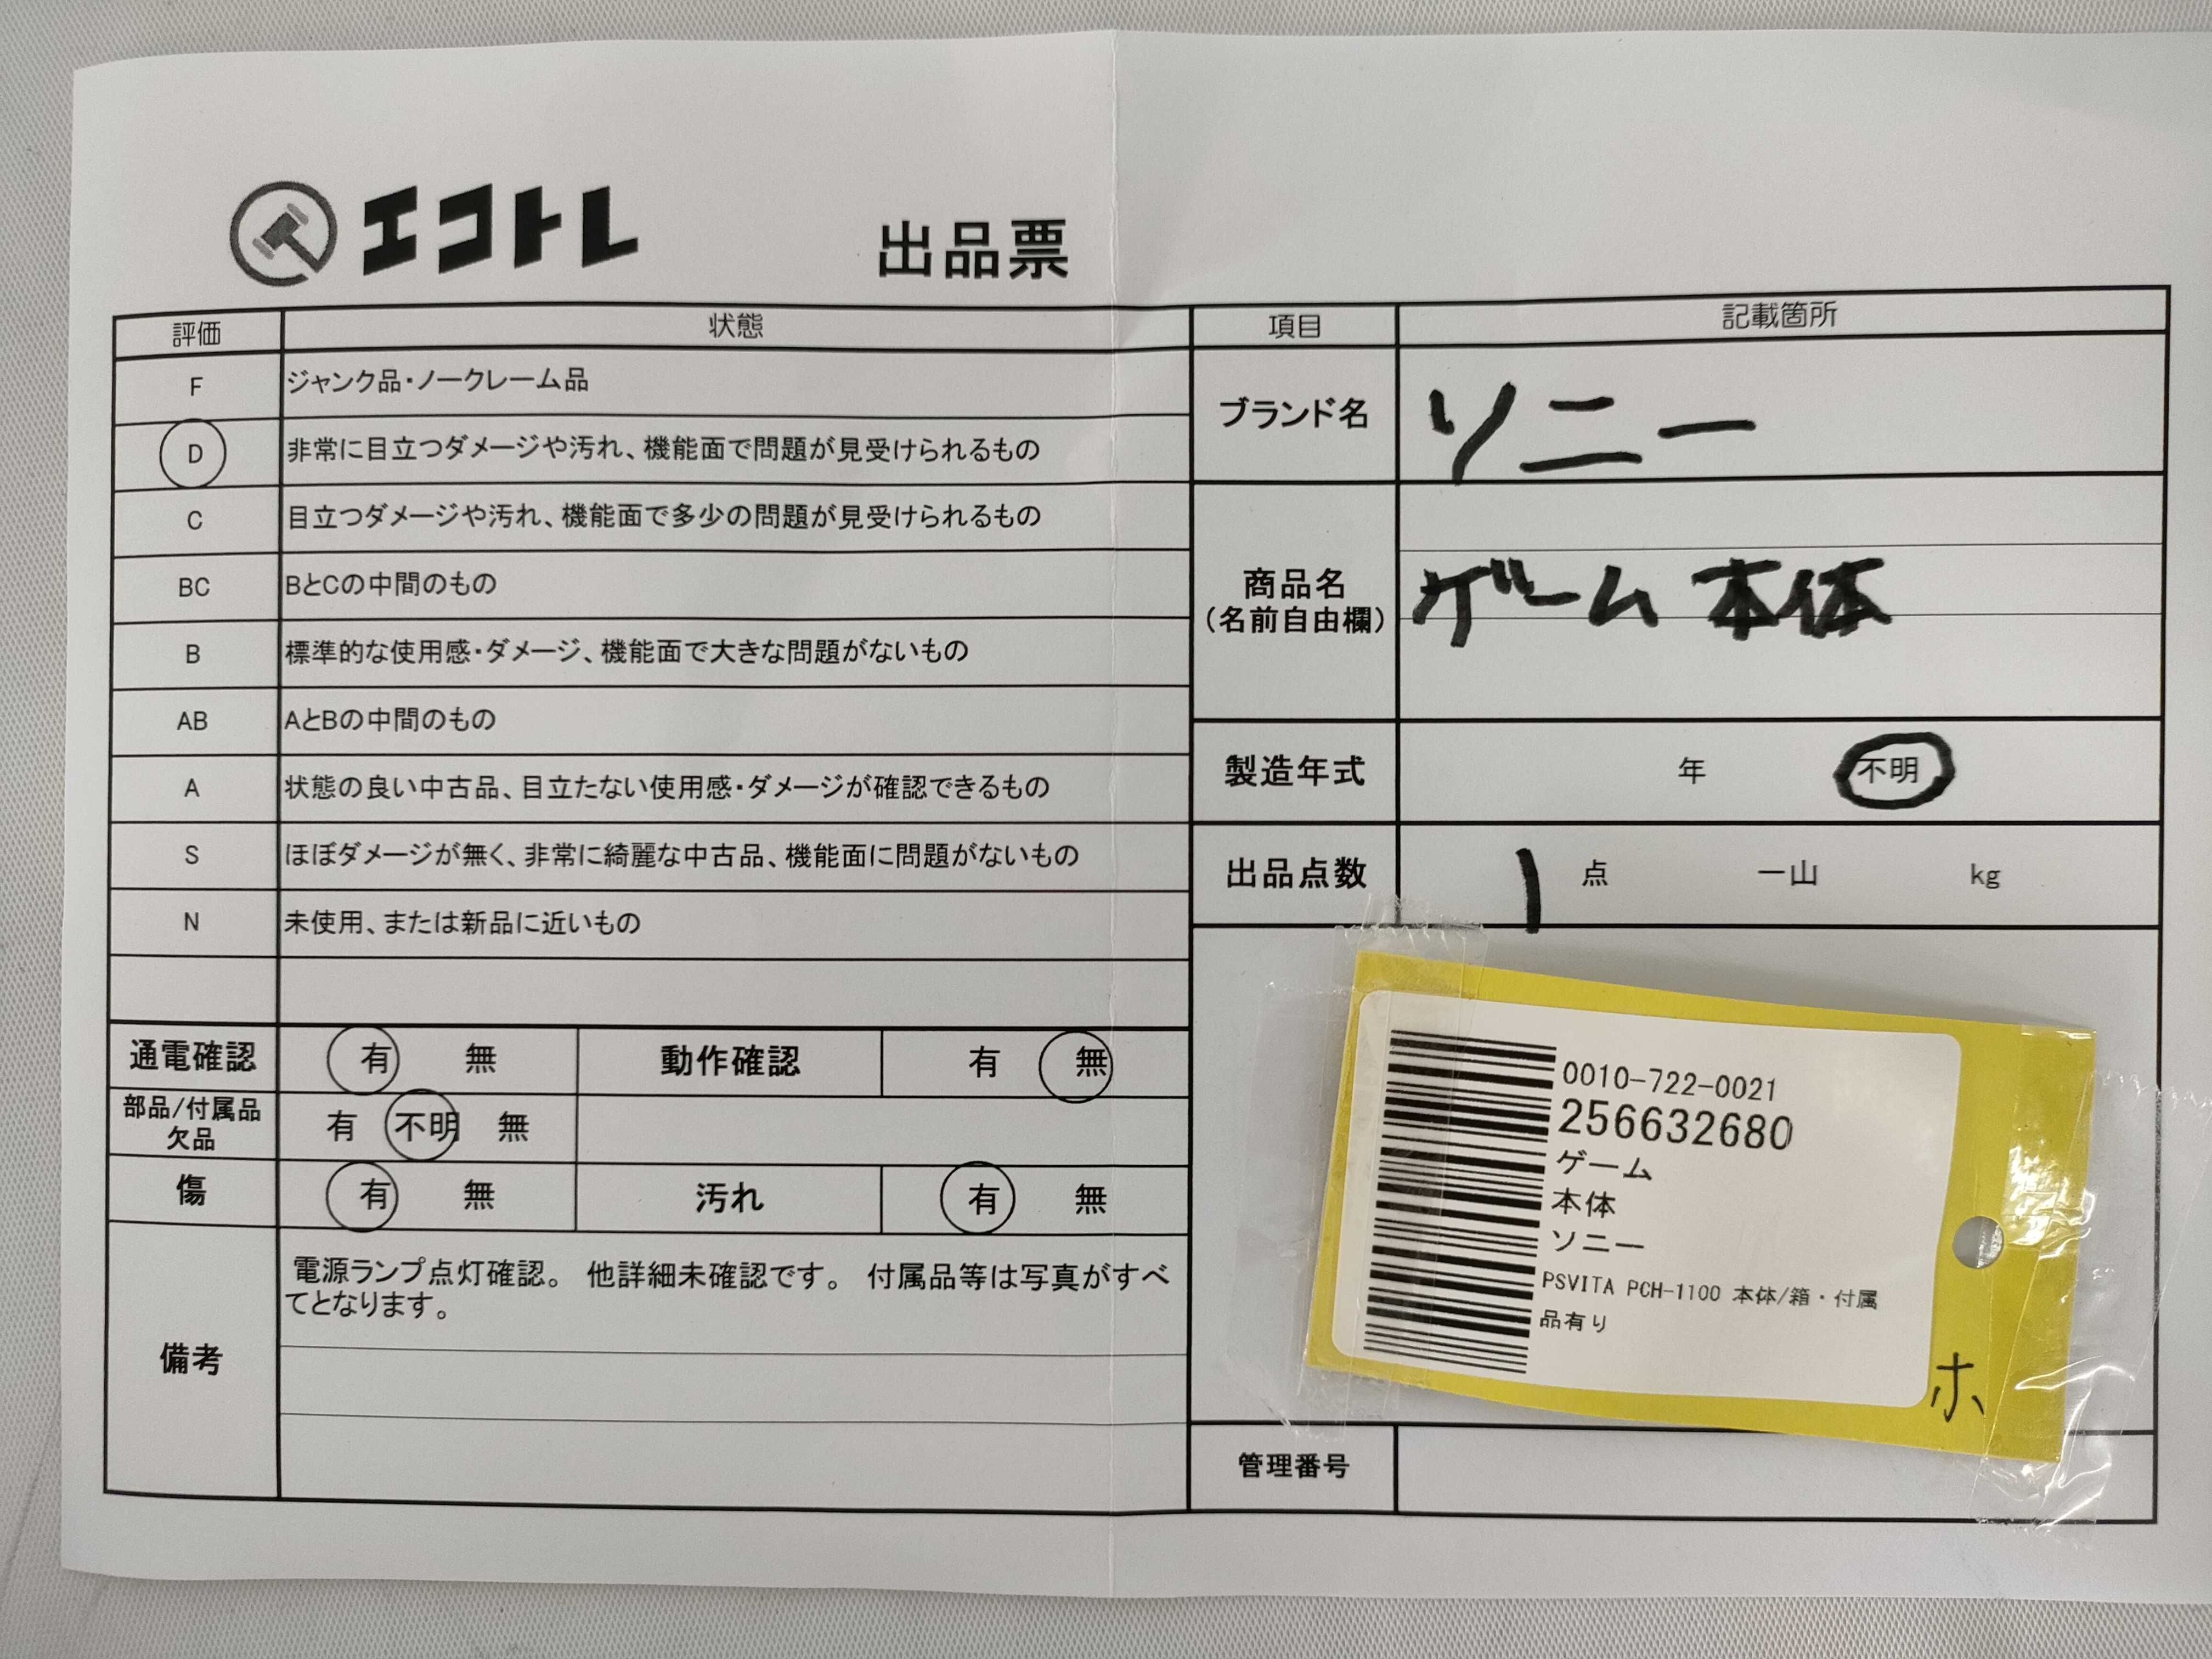 エコトレ
出品票
評価 状態
F ジャンク品・ノークレーム品
D 非常に目立つダメージや汚れ、機能面で問題が見受けられるもの
C 目立つダメージや汚れ、機能面で多少の問題が見受けられるもの
BC BとCの中間のもの
B 標準的な使用感・ダメージ、機能面で大きな問題がないもの
AB AとBの中間のもの
A 状態の良い中古品、目立たない使用感・ダメージが確認できるもの
S ほぼダメージが無く、非常に綺麗な中古品、機能面に問題がないもの
N 未使用、または新品に近いもの
通電確認 有 無 動作確認 有 無
部品/付属品
欠品 有 不明 無
傷 有 無 汚れ 有 無
備考
電源ランプ点灯確認。 他詳細未確認です。 付属品等は写真がすべ
てとなります。
項目 記載箇所
ブランド名 ソニー
商品名
(名前自由欄)
ゲーム 本体
製造年式 年 不明
出品点数 1 点 一山 kg
0010-722-0021
256632680
ゲーム
本体
ソニー
PSVITA PCH-1100 本体/箱・付属
品有り
ホ
管理番号